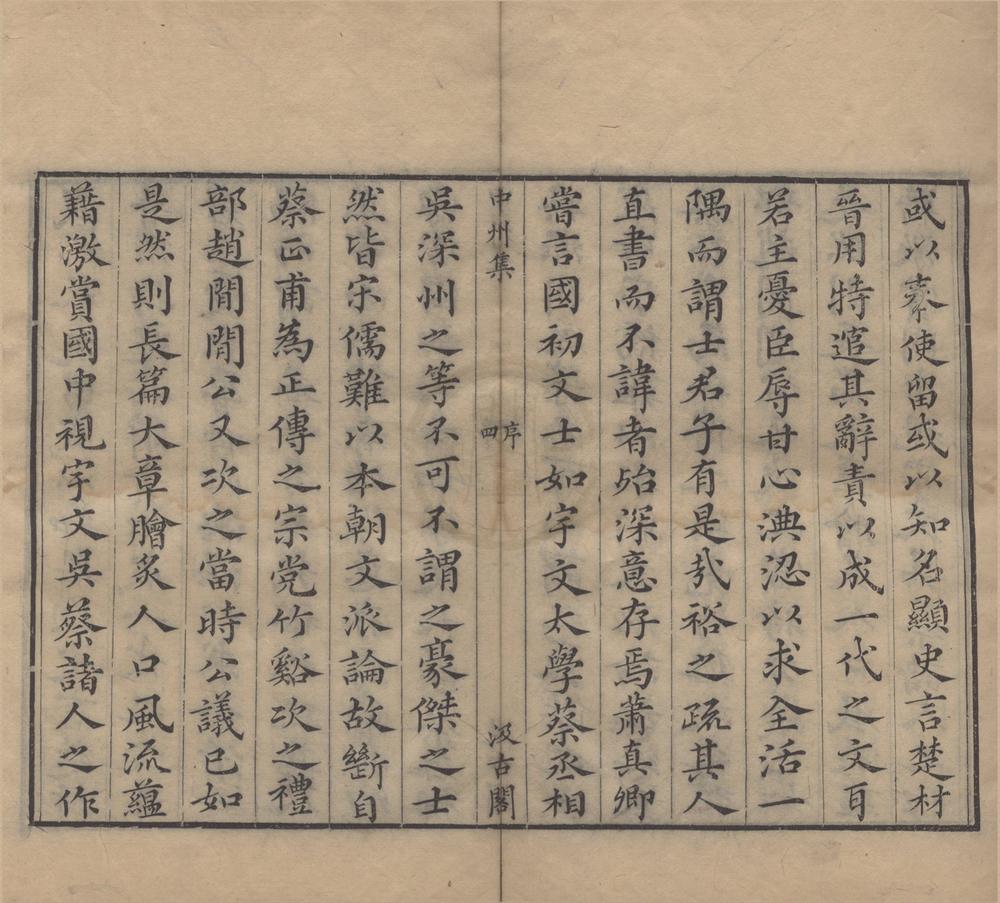 或以奉使留或以知名顯史言楚材
晉用特追其辭責以成一代之文百
若主憂臣辱甘心淟涊以求全活一
隅而謂士君子有是㢤裕之疏其人
直書而不諱者殆深意存焉蕭真卿
嘗言國初文士如宇文太學蔡丞相
中州集
序
四
汲古閣
吳深州之等不可不謂之豪傑之士
然皆宋儒難以本朝文派論故斷自
蔡正甫為正傳之宗党竹谿次之禮
部趙閒閒公又次之當時公議已如
是然則長篇大章膾炙人口風流蘊
藉激賞國中視宇文吳蔡諸人之作